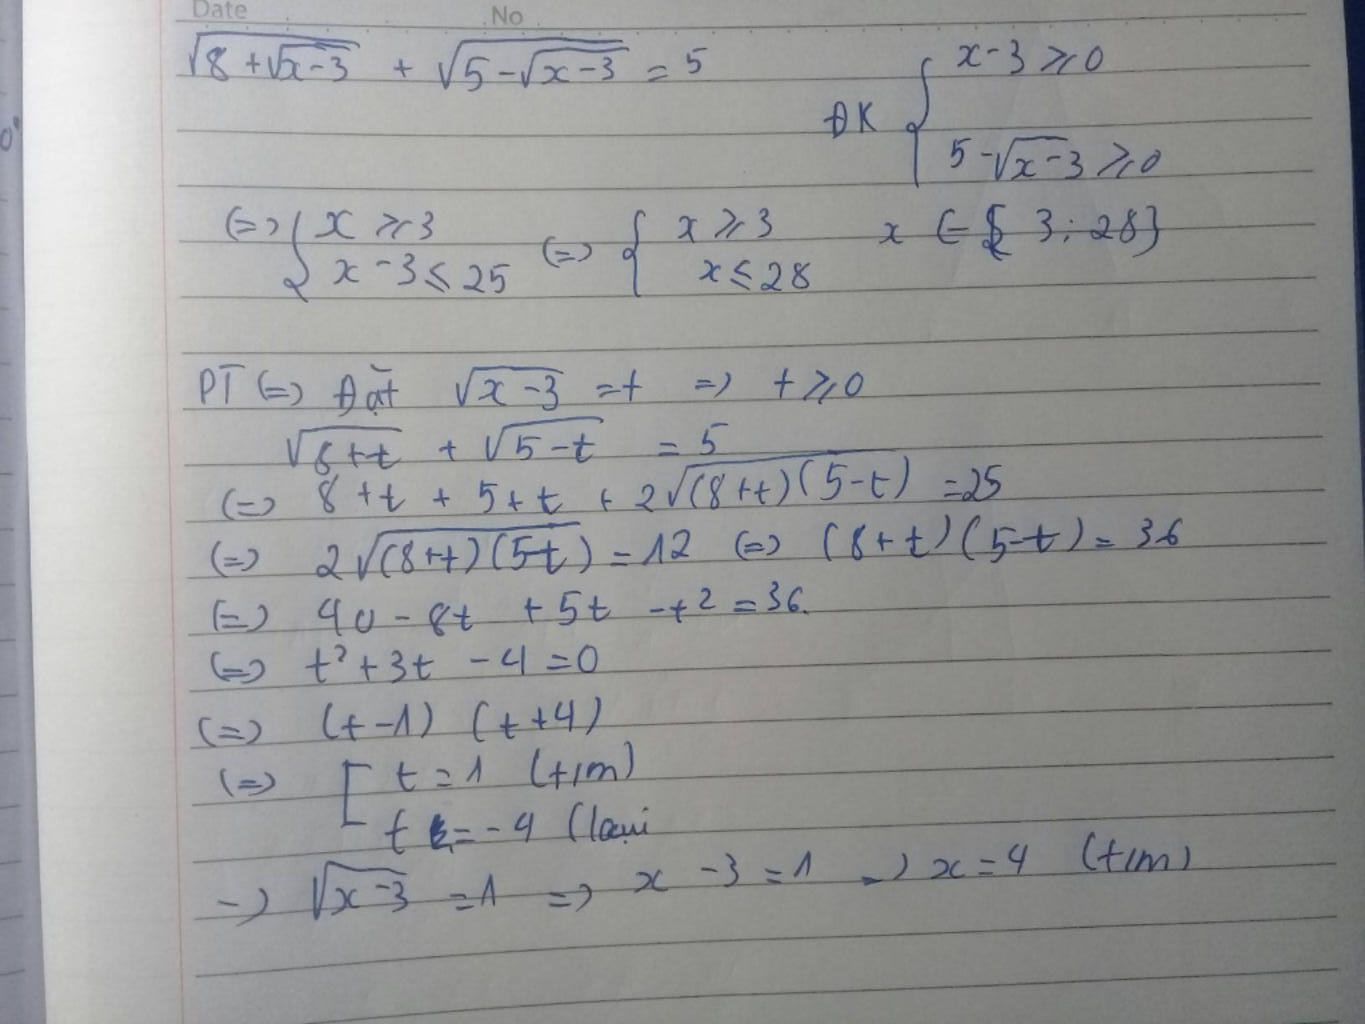 Date No
√(8+√(x-3)) + √(5-√(x-3)) = 5
ĐK { x-3 ⩾ 0
5-√(x-3) ⩾ 0
(=) { x ⩾ 3
x-3 ⩽ 25
(=) { x ⩾ 3
x ⩽ 28
x ∈ [ 3 ; 28 }
PT (=) Đặt √(x-3) = t => t ⩾ 0
√(8+t) + √(5-t) = 5
(=) 8 + t + 5 + t + 2√((8+t)(5-t)) = 25
(=) 2√((8+t)(5-t)) = 12 (=) (8+t)(5-t) = 36
(=) 40 - 8t + 5t - t² = 36.
(=) t² + 3t - 4 = 0
(=) (t-1) (t+4)
(=) [ t = 1 (t/m)
t = -4 (loại
-> √(x-3) = 1 => x - 3 = 1 -> x = 4 (t/m)